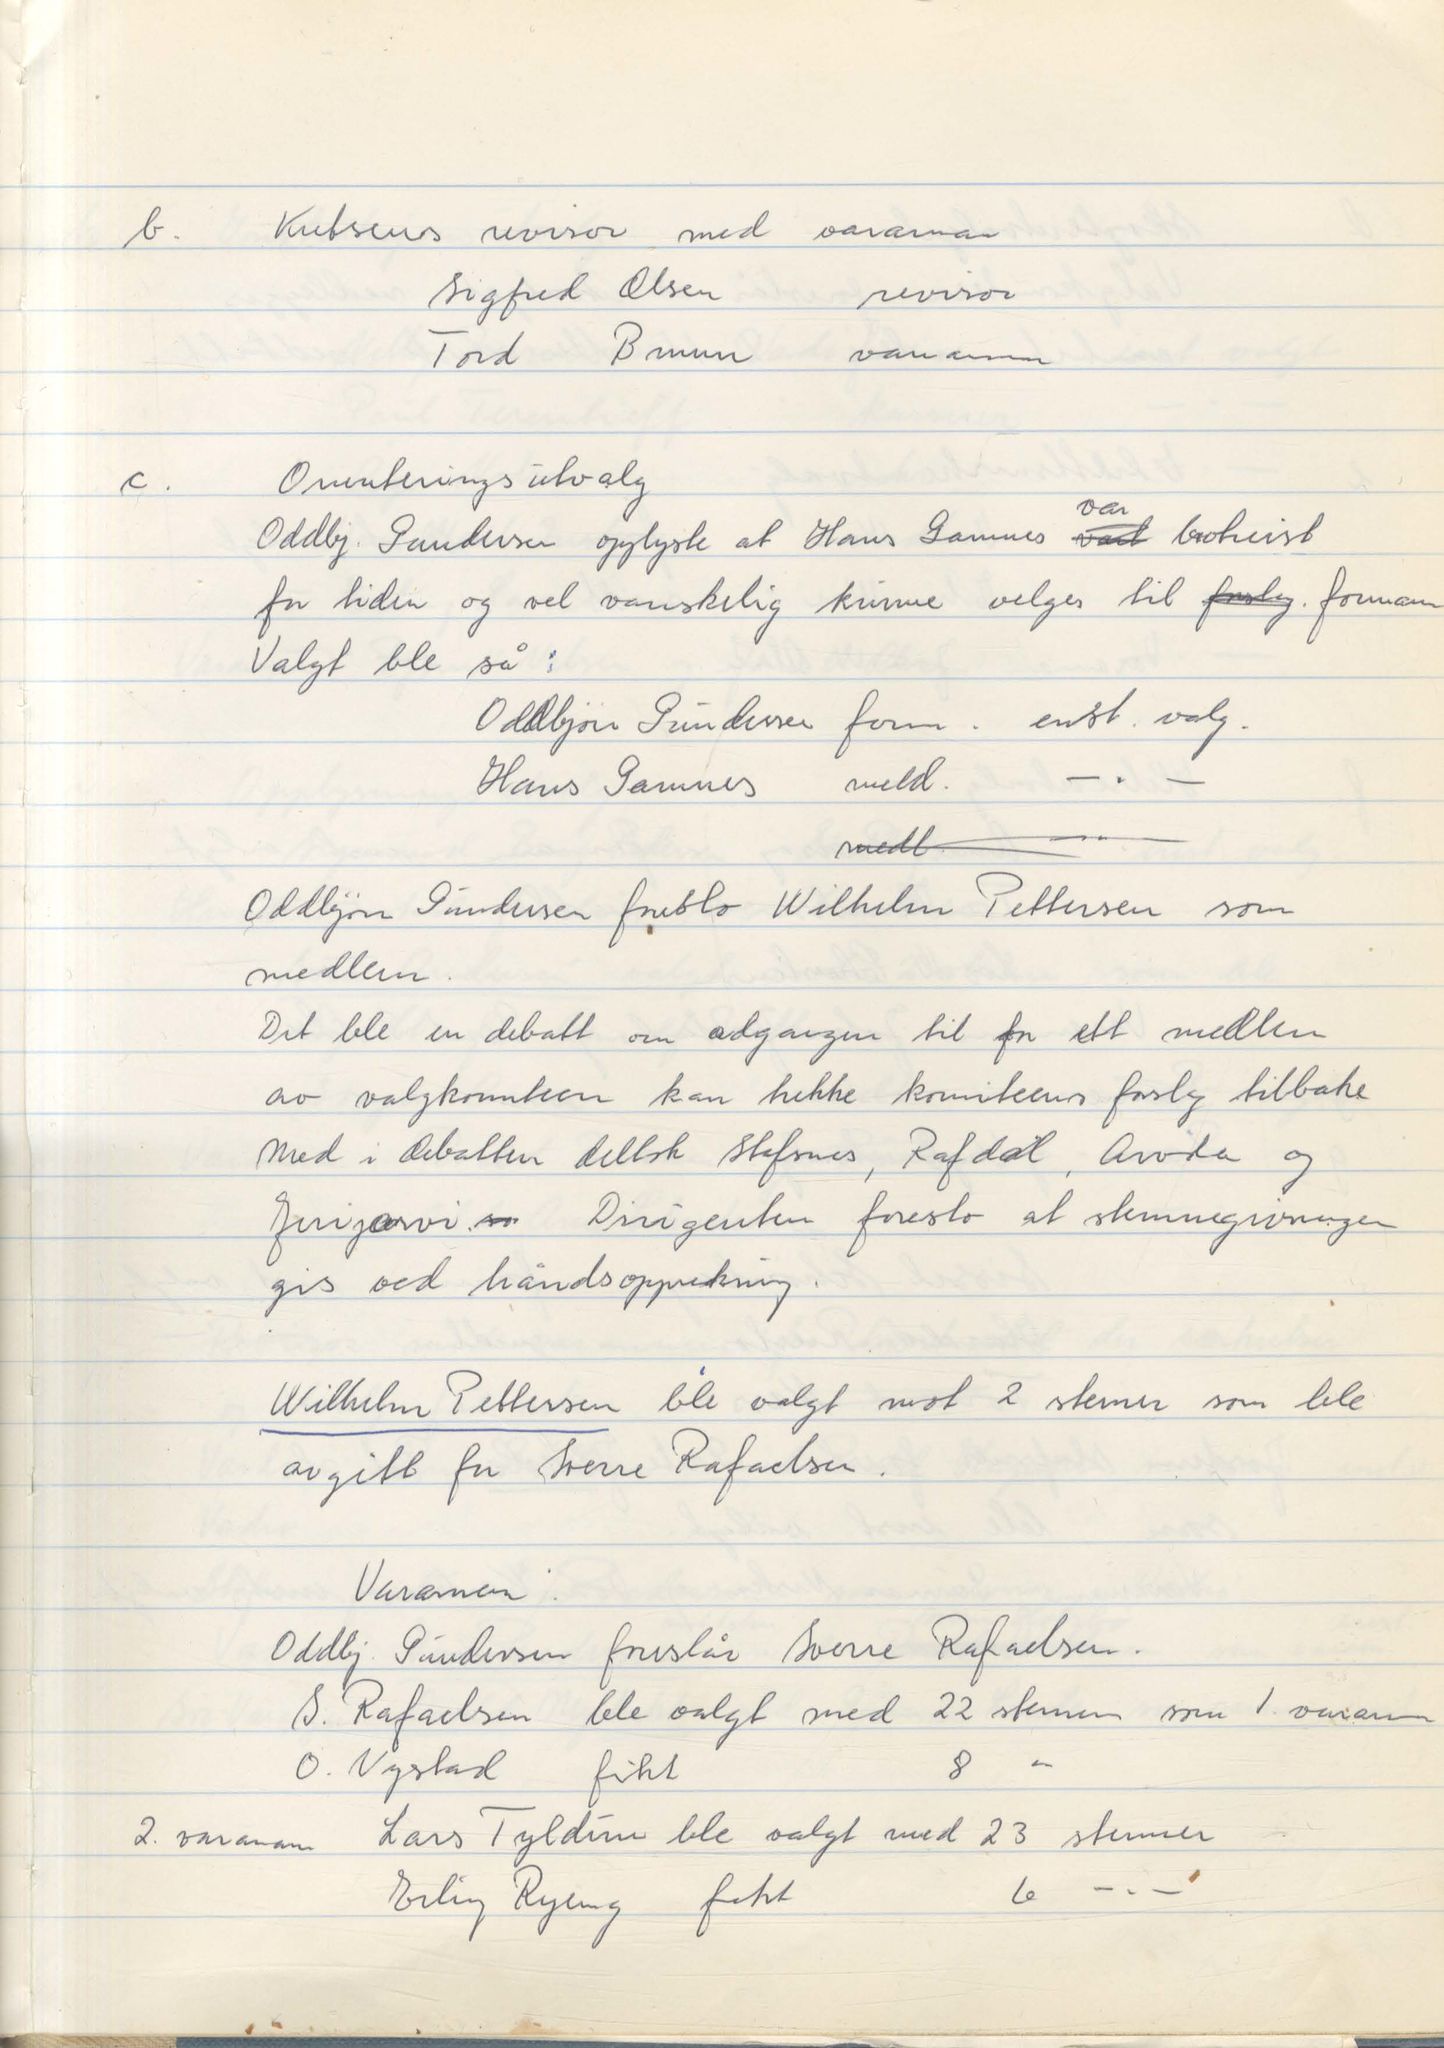 b. Kretsens revisor med varaman
Sigfred Olsen revisor
Tord Bruun varamann
c. Orienteringsutvalg
Oddbj. Gundersen opplyste at Hans Gamnes var
for tiden og vel vanskelig kunne velges til formann
Valgt ble så:
Oddbjørn Gundersen form. enst. valg.
Hans Gamnes medl. -.-
medl.
Oddbjørn Gundersen foreslo Wilhelm Pettersen som
medlem.
Det ble en debatt om adgangen til for ett medlem
av valgkomiteen kan trekke komiteens forslg tilbake
Med i debatten deltok Stefsnes, Rafdal, Arvola og
Dirigenten foreslo at stemmegivningen
gis ved håndsopprekning.
Wilhelm Pettersen ble valgt mot 2 stemer som ble
avgitt for Sverre Rafaelsen.
Varamen
Oddbj. Gundersen foreslår Sverre Rafaelsen.
S. Rafaelsen ble valgt med 22 stemmer som 1. varamn
O. Nystad fikk 8 "
2. varaman Lars Tyldum ble valgt med 23 stemmer
Erling Ryeng fikk 6 -.-